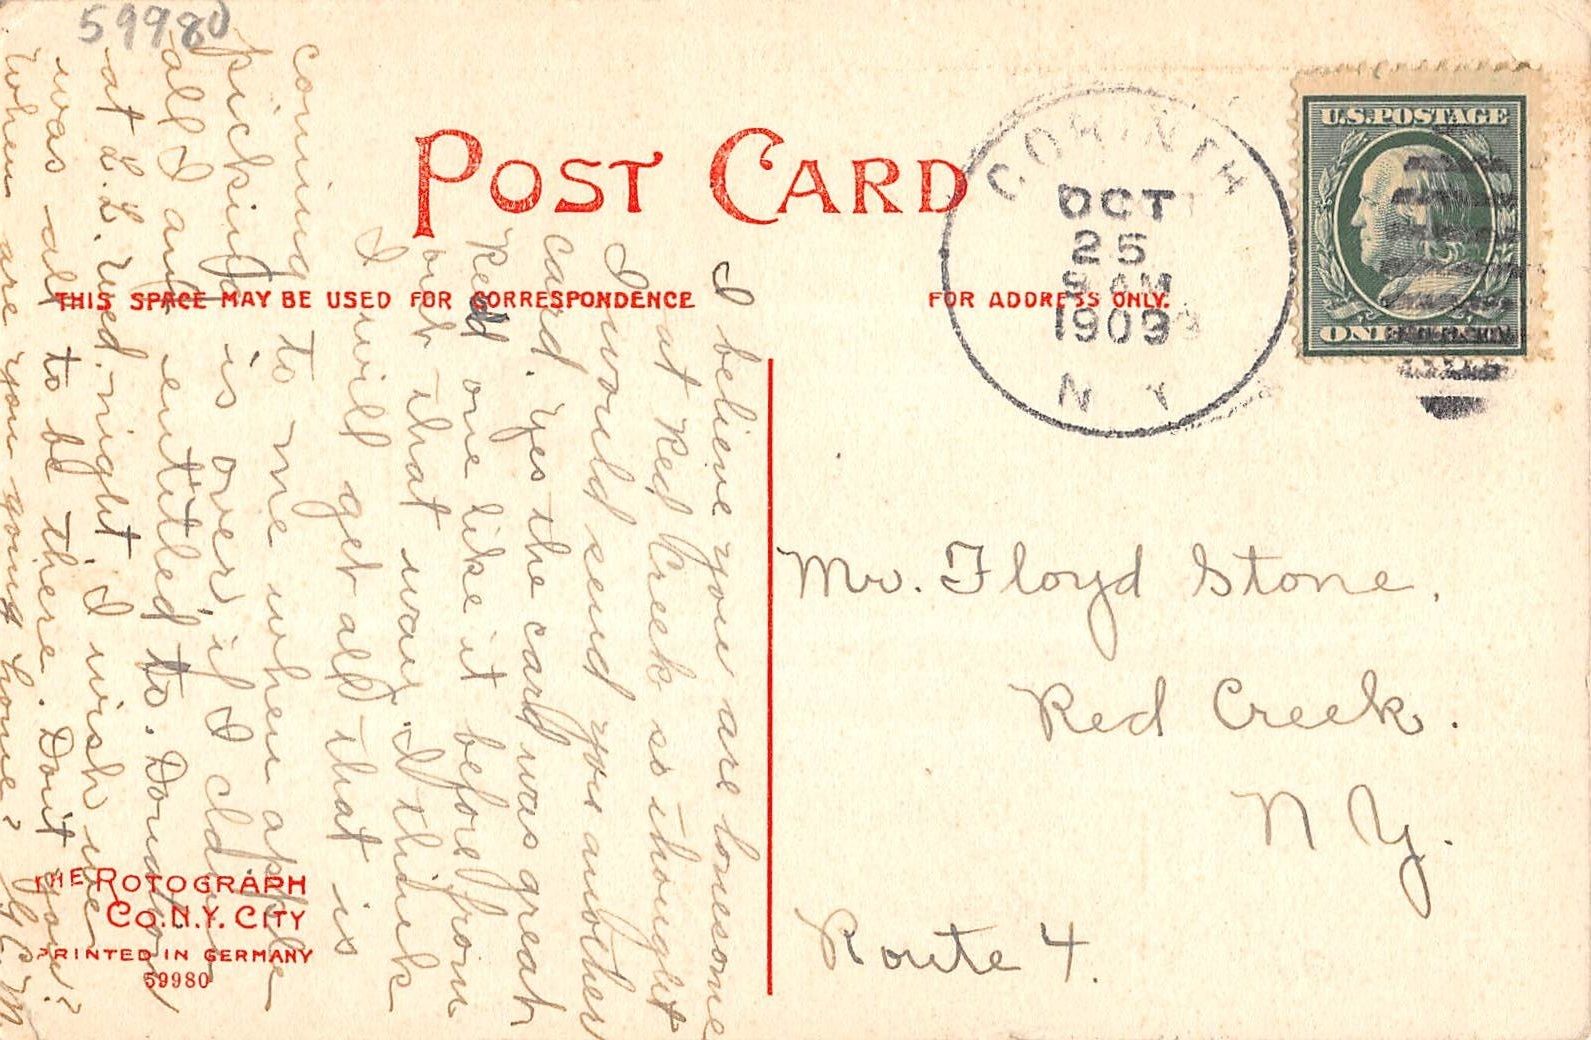 59980
POST CARD
THIS SPACE MAY BE USED FOR CORRESPONDENCE
FOR ADDRESS ONLY.
CORINTH
OCT
25
9 AM
1909
N Y
U.S. POSTAGE
ONE
I believe you are lonesome
at Red Creek so thought
I would send you another
card. Yes the card was great
Red one like it before from
out that way. I think
I will get all that is
coming to me when apple
picking is over, if I
all I am entitled to.
at L.L. Wed. night. I wish we
was all to be there. Don't you?
When are you going home? G.C.M.
Mr. Floyd Stone.
Red Creek.
N Y.
Route 4.
THE ROTOGRAPH
CO. N.Y. CITY
PRINTED IN GERMANY
59980